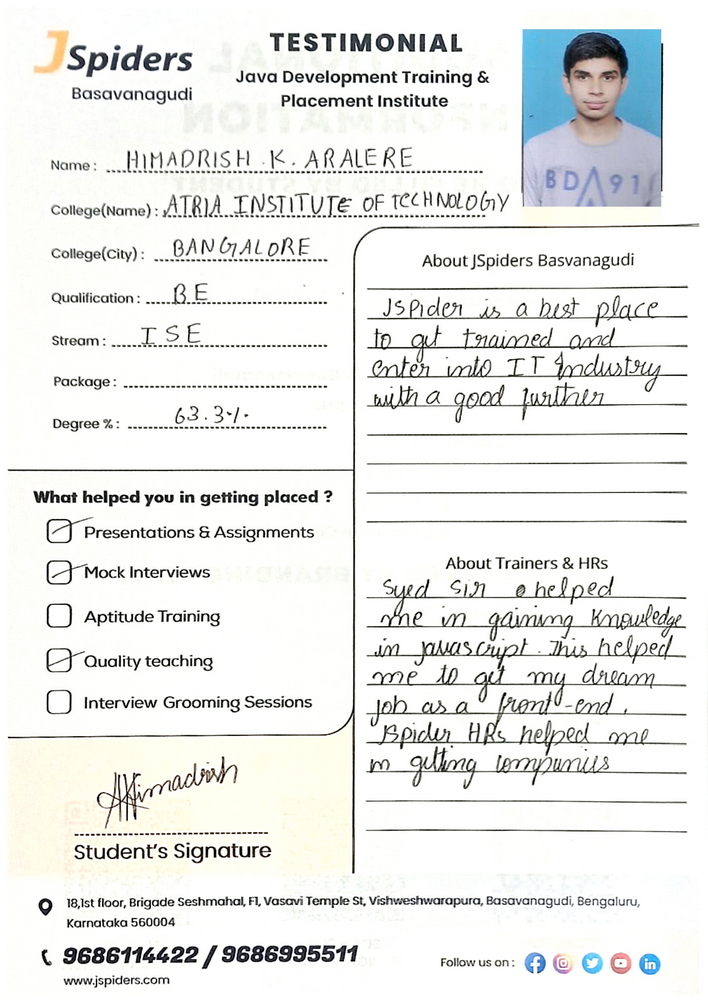 JSpiders
Basavanagudi
TESTIMONIAL
Java Development Training &
Placement Institute
BDA91
Name : HIMADRISH . K. ARALERE
College(Name) : ATRIA INSTITUTE OF TECHNOLOGY
College(City) : BANGALORE
Qualification : BE
Stream : ISE
Package :
Degree % : 63.3%
What helped you in getting placed ?
Presentations & Assignments
Mock Interviews
Aptitude Training
Quality teaching
Interview Grooming Sessions
Himadrish
Student's Signature
About JSpiders Basvanagudi
JSPider is a best place
to get trained and
enter into IT Industry
with a good further
About Trainers & HRs
Syed Sir helped
me in gaining Knowledge
in javascript. This helped
me to get my dream
job as a front-end.
JSpider HRs helped me
in getting companies
18,1st floor, Brigade Seshmahal, F1, Vasavi Temple St, Vishweshwarapura, Basavanagudi, Bengaluru,
Karnataka 560004
9686114422 / 9686995511
www.jspiders.com
Follow us on :